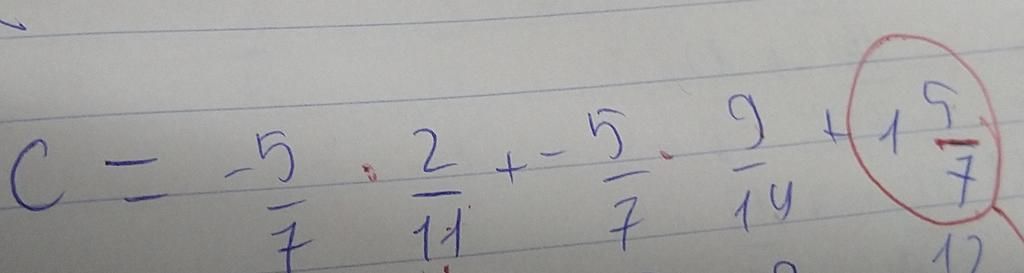 C = -5/7 · 2/11 + -5/7 · 9/14 + 1 5/7
12